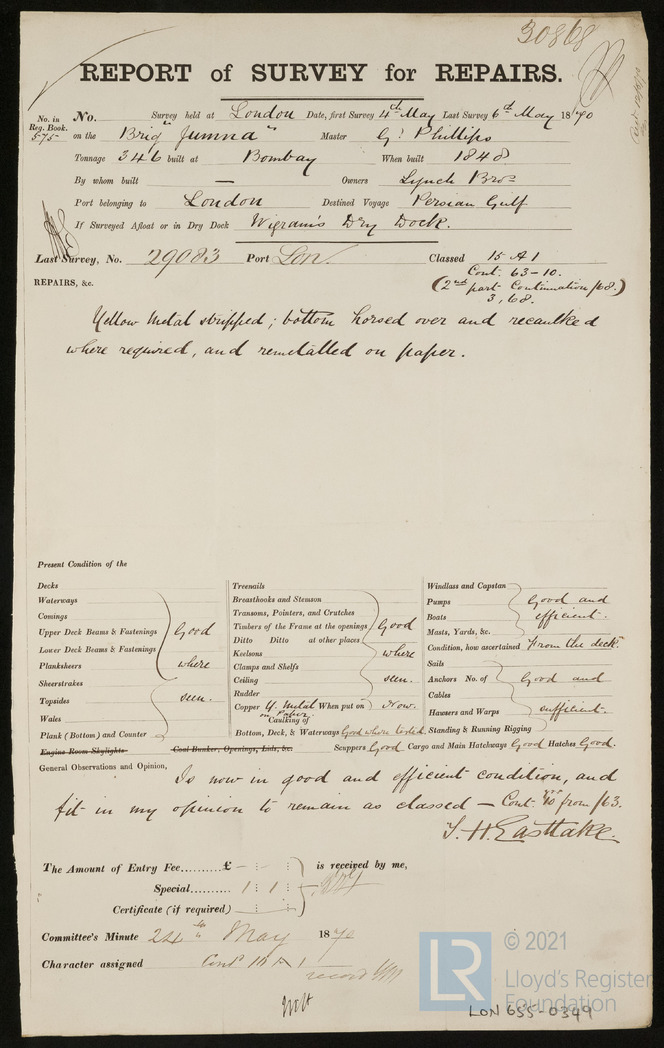 30868
REPORT of SURVEY for REPAIRS.
No. in Reg. Book. 575
No. Survey held at London Date, first Survey 4th May Last Survey 6th May 1870
on the Brig "Jumna" Master G. Phillips
Tonnage 346 built at Bombay When built 1848
By whom built — Owners Lynch Bros
Port belonging to London Destined Voyage Persian Gulf
If Surveyed Afloat or in Dry Dock Wigram's Dry Dock.
Last Survey, No. 29083 Port Lon. Classed 15 A 1
Cont. 63-10.
(2nd part Continuation /68.)
3, 68.
REPAIRS, &c.
Yellow Metal stripped; bottom horsed over and recaulked
where required, and remetalled on paper.
Present Condition of the
Decks
Waterways
Comings
Upper Deck Beams & Fastenings
Lower Deck Beams & Fastenings
Planksheers
Sheerstrakes
Topsides
Wales
Plank (Bottom) and Counter
Good where seen.
Engine Room Skylights Coal Bunker, Openings, Lids, &c.
Treenails
Breasthooks and Stemson
Transoms, Pointers, and Crutches
Timbers of the Frame at the openings
Ditto Ditto at other places
Keelsons
Clamps and Shelfs
Ceiling
Rudder
Good where seen.
Copper Y. Metal on Paper When put on Now.
Caulking of
Bottom, Deck, & Waterways Good where tested.
Windlass and Capstan
Pumps
Boats
Masts, Yards, &c.
Good and efficient.
Condition, how ascertained From the deck.
Sails
Anchors No. of
Cables
Hawsers and Warps
Standing & Running Rigging
Good and sufficient.
Scuppers Good Cargo and Main Hatchways Good Hatches Good.
General Observations and Opinion,
Is now in good and efficient condition, and
fit in my opinion to remain as classed — Cont. 10 yrs from /63.
T. H. Eastlake.
The Amount of Entry Fee..........£ — : :
is received by me,
Special.......... 1 : 1 :
Certificate (if required) : :
Committee's Minute 24th May 1870
Character assigned Cont. 10 A 1
record YM
© 2021
LR
Lloyd's Register
Foundation
LON 655-0349